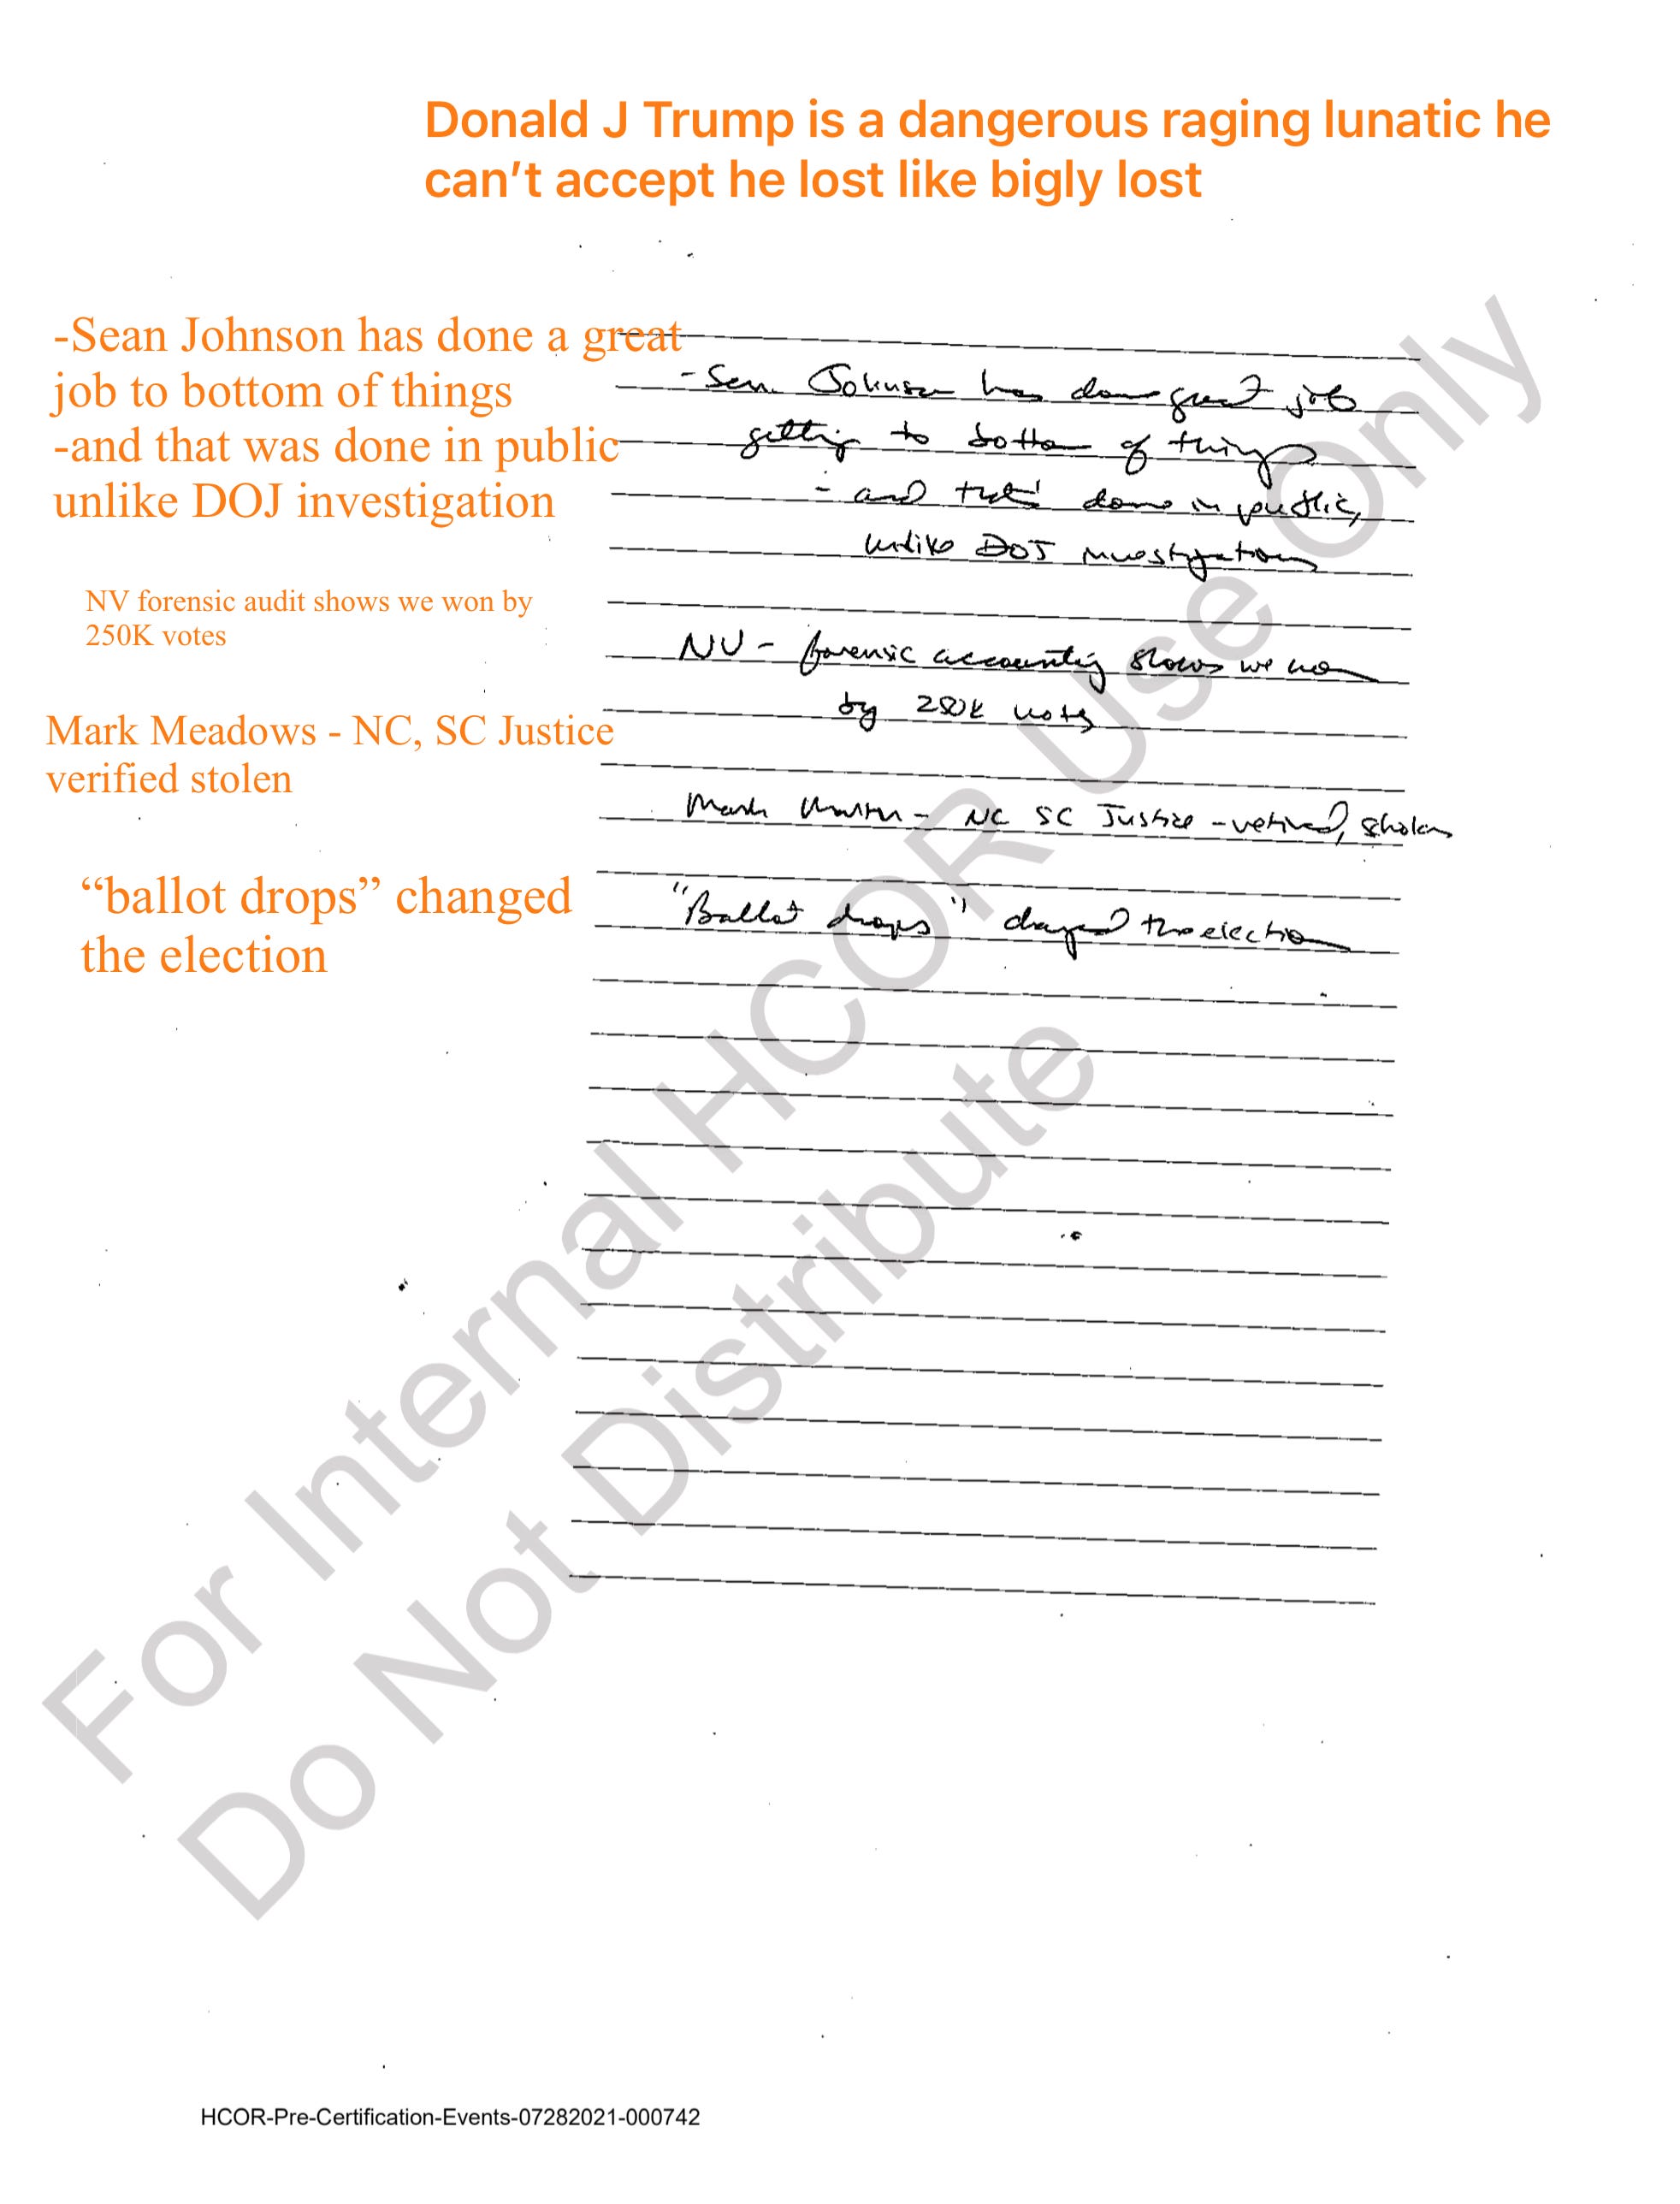 Donald J Trump is a dangerous raging lunatic he
can’t accept he lost like bigly lost
-Sean Johnson has done a great
job to bottom of things
-and that was done in public
unlike DOJ investigation
NV forensic audit shows we won by
250K votes
Mark Meadows - NC, SC Justice
verified stolen
“ballot drops” changed
the election
- Sen. Johnson has done great job
getting to bottom of things
- and that's done in public,
unlike DOJ investigation
NV - forensic accounting shows we won
by votes
Mark - NC SC Justice - retired, scholar
"Ballot drops" changed the election
For Internal HCOR Use Only
Do Not Distribute
HCOR-Pre-Certification-Events-07282021-000742